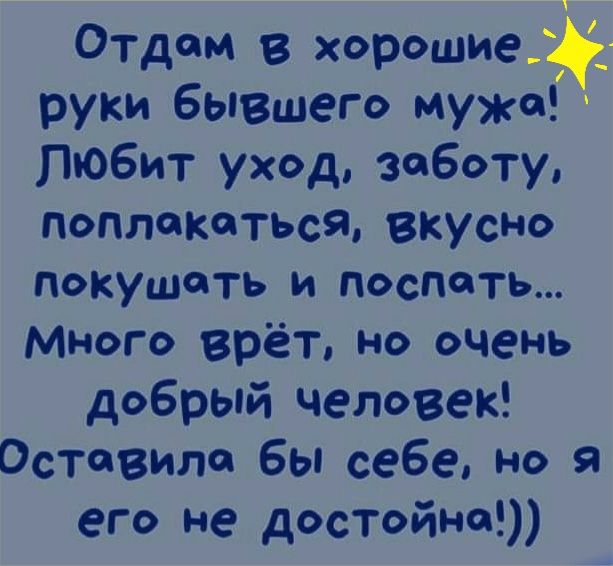 Отдам в хорошие
руки бывшего мужа!
Любит уход, заботу,
поплакаться, вкусно
покушать и поспать...
Много врёт, но очень
добрый человек!
Оставила бы себе, но я
его не достойна!))